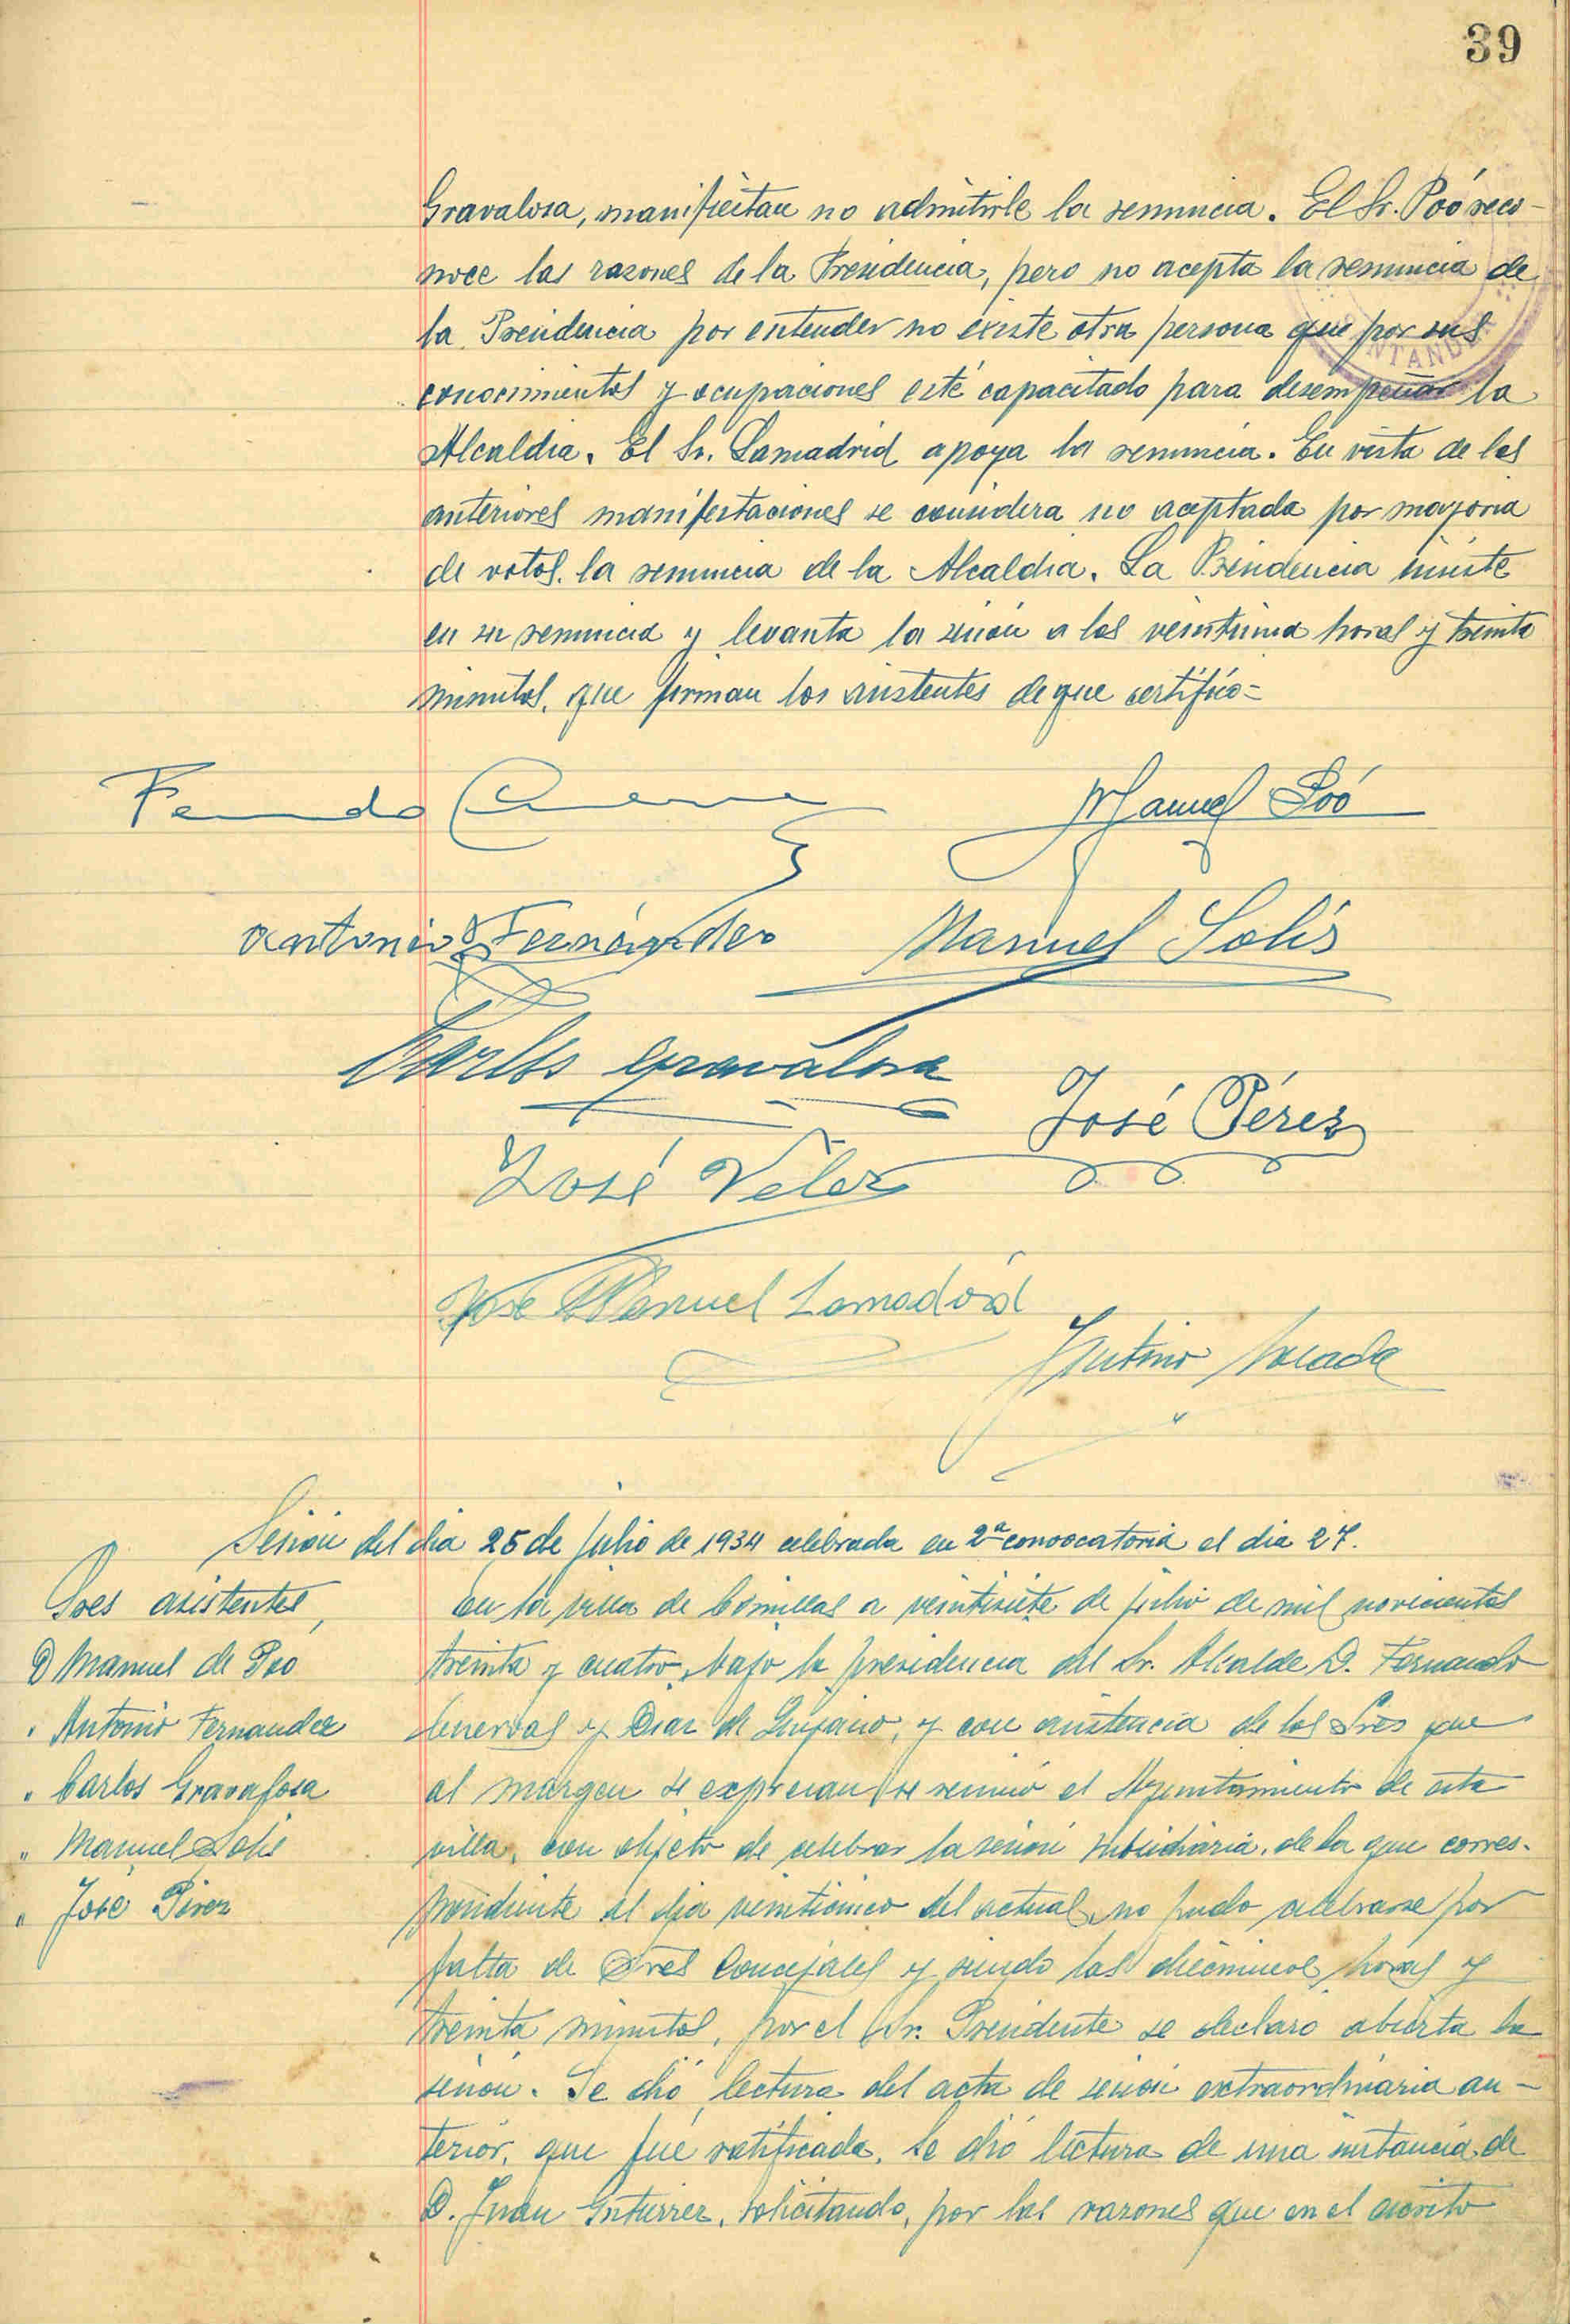 39
Gravalosa, manifiestan no admitirle la renuncia. El Sr. Poó reco-
noce las razones de la Presidencia, pero no acepta la renuncia de
la Presidencia por entender no existe otra persona que por sus
conocimientos y ocupaciones esté capacitado para desempeñar la
Alcaldia. El Sr. Lamadrid apoya la renuncia. En vista de las
anteriores manifestaciones se considera no aceptada por mayoria
de votos. la renuncia de la Alcaldia. La Presidencia insiste
en su renuncia y levanta la sesión a las veintiuna horas y treinta
minutos, que firman los asistentes de que certifico=
NTANDER
Fernando
Manuel Poó
Antonio Fernández
Manuel Solís
Carlos Gravalosa
José Pérez
José Vélez
Jose Manuel Lamadrid
Sesión del dia 25 de Julio de 1934 celebrada en 2ª convocatoria el dia 27.
Sres asistentes,
D Manuel de Poo
" Antonio Fernandez
" Carlos Gravalosa
" Manuel Solis
" José Pérez
En la villa de Comillas a veintisiete de julio de mil novecientos
treinta y cuatro, bajo la presidencia del Sr. Alcalde D. Fernando
Cuervas y Diaz de Quijano, y con asistencia de los Sres que
al margen se expresan se reunió el Ayuntamiento de esta
villa, con objeto de celebrar la sesión subsidiaria, de la que corres-
pondiente al dia veinticinco del actual, no pudo celebrarse por
falta de Sres Concejales y siendo las diecinueve horas y
treinta minutos, por el Sr. Presidente se declaro abierta la
sesión. Se dió lectura del acta de sesión extraordinaria an-
terior, que fué ratificada. Se dió lectura de una instancia de
D. Juan Gutierrez, solicitando, por las razones que en el escrito